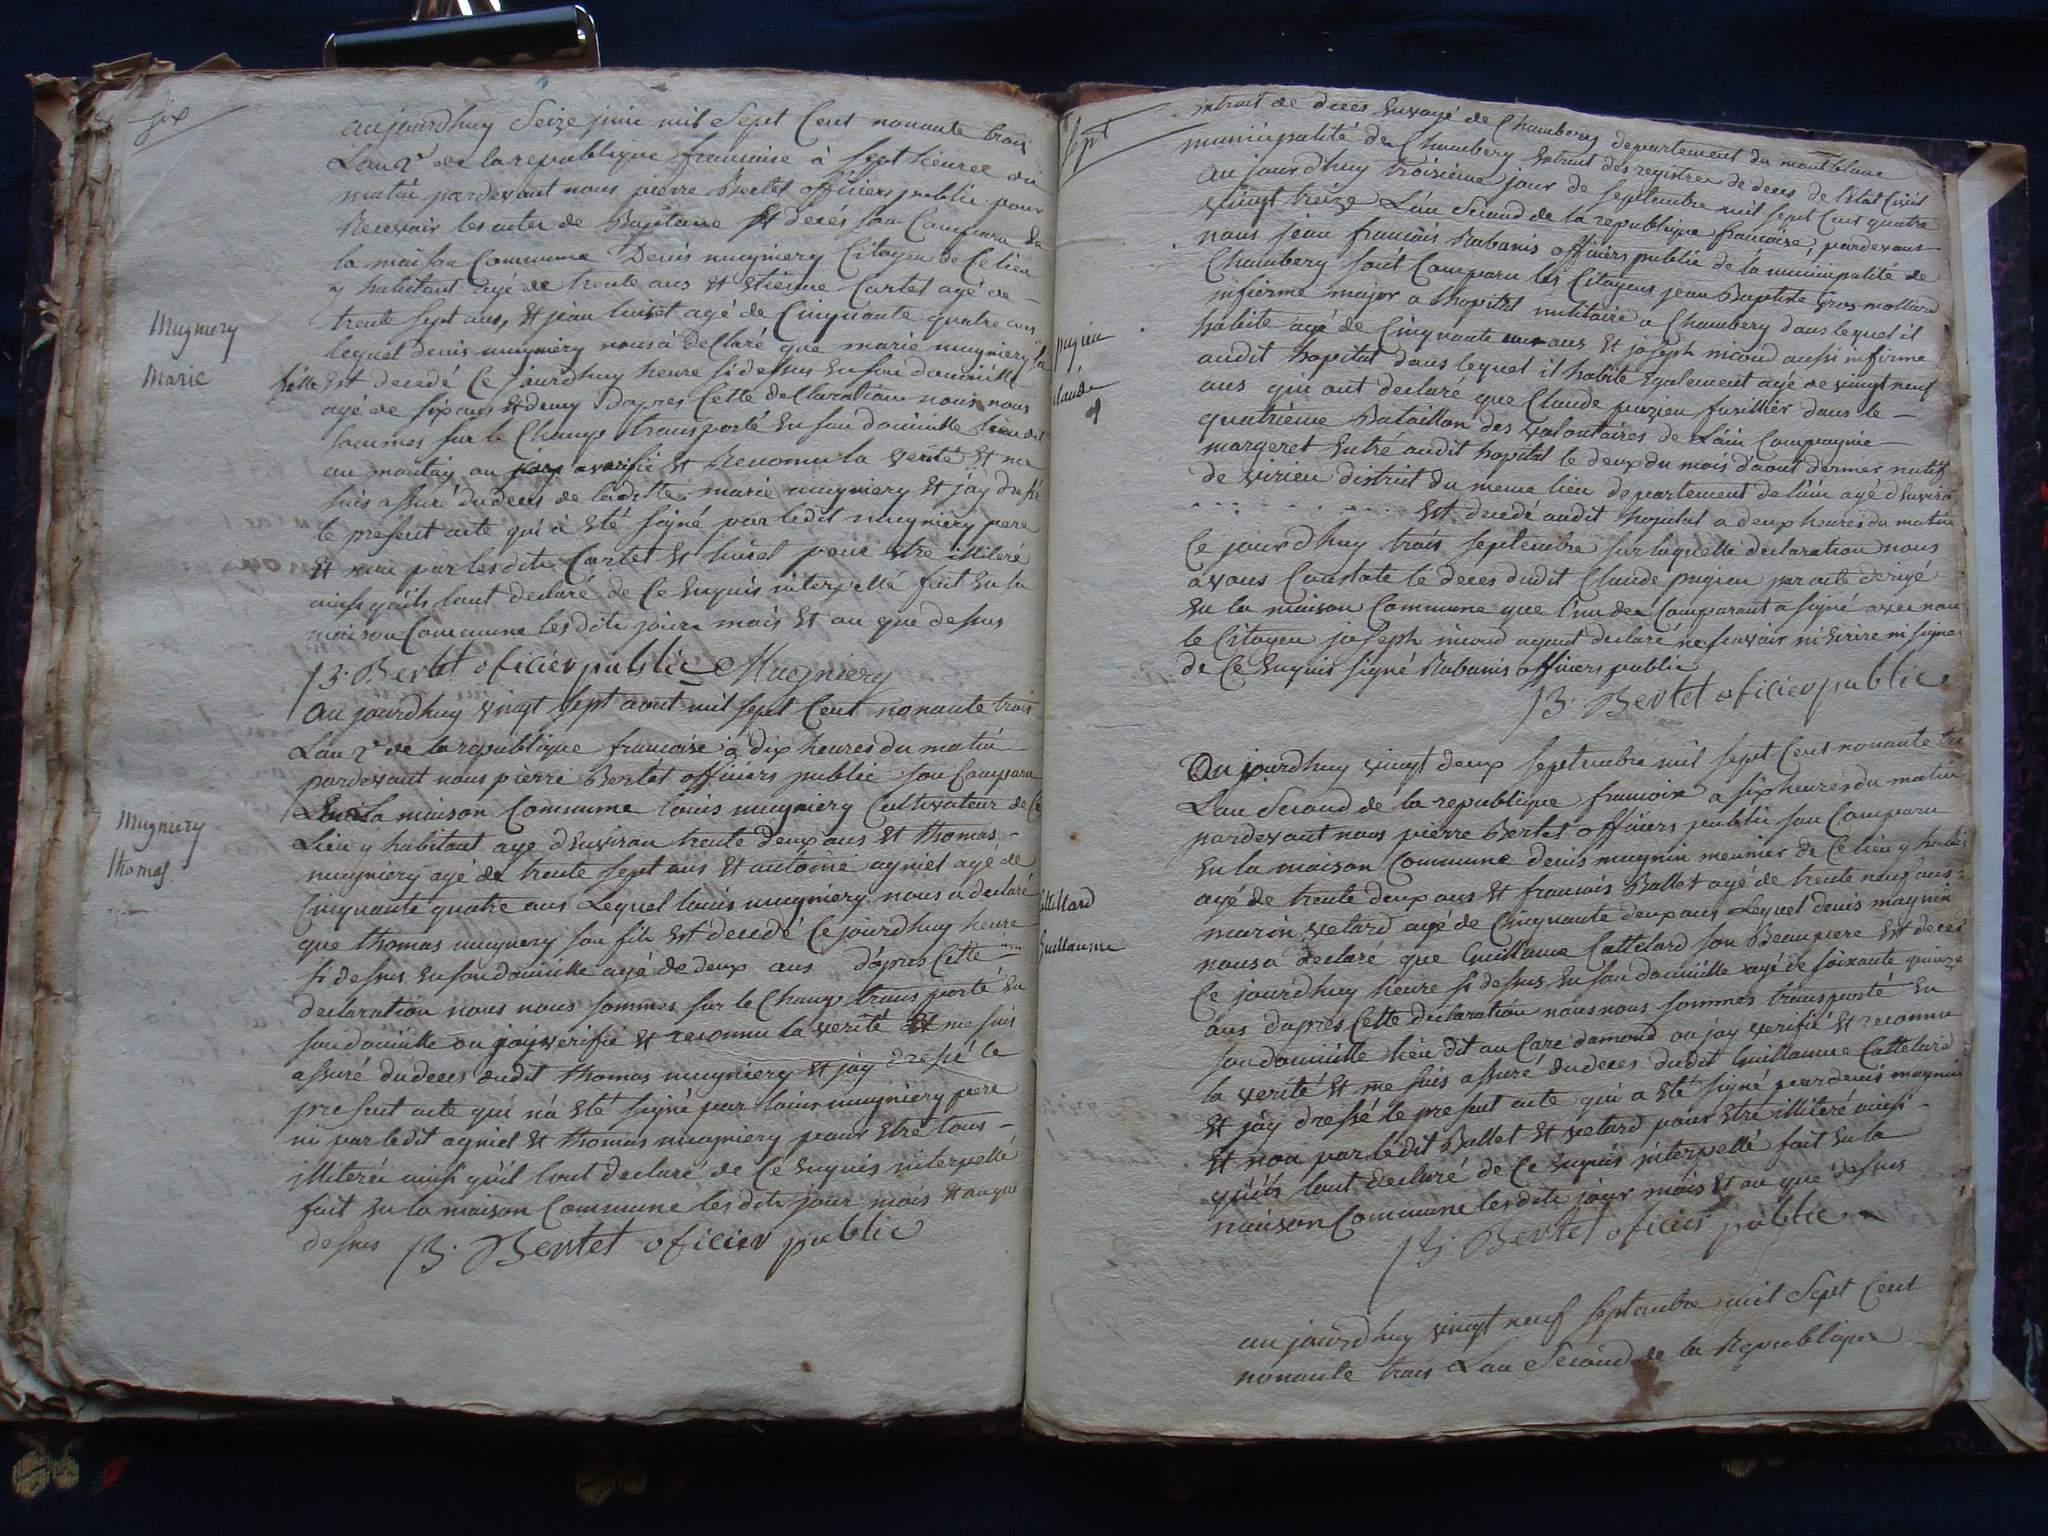 six
aujourdhuy Seize juin mil Sept Cent nonante trois
Lan 2e de la republique francoise à sept heures du
matin pardevant nous pierre Bertet officiers public pour
Recevoir les actes de Baptême et decés son Comparu En
la maison Commune Denis mugniery Citoyen de Ce lieu
y habitant agé de trente ans et Etienne Cartet agé de
trente sept ans, et jean huset agé de Cinquante quatre ans
lequel denis mugniery nous à declaré que marie mugniery sa
Mugniery
Marie
fille Est decedé Ce jourdhuy heure si dessus En son domicille
agé de six ans et demy dapres Cette declaration nous nous
sommes sur le Champ transporté En son domicille lieu dit
au montay ou jay averifié et Reconnu la verité et me
suis assuré du deces de laditte marie mugniery et jay dressé
le present acte qui à Eté signé par ledit mugniery pere
et non par lesdits Cartet et huset pour Etre illiteré
ainsi quils lont declaré de Ce Enquis interpellé fait En la
maison Commune lesdits jours mois et an que dessus
P. Bertet oficier public Mugniery
aujourdhuy vingt sept aout mil sept Cent nonante trois
Lan 2e de la republique francoise à dix heures du matin
pardevant nous pierre Bertet officiers public son Comparu
En La maison Commune louis mugniery Cultivateur de Ce
Lieu y habitant agé dEnviron trente deux ans et thomas
Mugniery
thomas
mugniery agé de trente sept ans et antoine agniel agé de
Cinquante quatre ans Lequel louis mugniery nous a declaré
que thomas mugniery son fils Est decedé Ce jourdhuy heure
si dessus En son domicille agé de deux ans dapres Cette
declaration nous nous sommes sur le Champ transporté En
son domicille ou jay verifié et reconnu la verité et me suis
assuré du deces dudit thomas mugniery et jay dressé le
present acte qui na Eté signé par louis mugniery pere
ni par ledit agniel et thomas mugniery pour Etre tous
illiteré ainsi quil lont declaré de Ce Enquis interpellé
fait En la maison Commune lesdits jour mois et an que
dessus P. Bertet oficier public
sept
extrait de deces Envoyé de Chambery departement du mont blanc
municipalité de Chambery Extrait des registres de deces de letat Civil
aujourdhuy troisieme jour de septembre mil sept Cent quatre
vingt treize Lan Second de la republique francoise, pardevant
nous jean francois Rabanis officiers public de la municipalité de
Chambery sont Comparu les Citoyens jean Baptiste gros mollard
infirme major a lhopital militaire a Chambery dans lequel il
habite agé de Cinquante ans et joseph nicoud aussi infirme
audit hopital dans lequel il habite Egalement agé de vingt neuf
pugieu
claude
ans qui ont declaré que Claude pugieu fusillier dans le
quatrieme Bataillon des volontaires de Lain Compagnie
margeret Entré audit hopital le deux du mois daout dernier natif
de virieu district du meme lieu departement de lain agé dEnviron
. . . . . . . . Est decedé audit hopital a deux heures du matin
Ce jourdhuy trois septembre sur laquelle declaration nous
avons Constaté le deces dudit Claude pugieu par acte derigé
En la maison Commune que lun des Comparant a signé avec nous
le Citoyen joseph nicoud ayant declaré ne scavoir ni Ecrire ni signer
de Ce Enquis signé Rabanis officiers public
P. Bertet oficier public
aujourdhuy vingt deux septembre mil sept Cent nonante trois
Lan Second de la republique francoise a six heures du matin
pardevant nous pierre Bertet officiers public son Comparu
En la maison Commune denis mugnin meunier de Ce lieu y habit
agé de trente deux ans et francois Ballet agé de trente neuf ans
Cattellard
Guillaume
marin velard agé de Cinquante deux ans Lequel denis magnin
nous a declaré que Guillaume Cattelard son Beaupere Est decedé
Ce jourdhuy heure si dessus En son domicille agé de soixante quinze
ans dapres Cette declaration nous nous sommes transporté En
son domicille lieu dit au Care damond ou jay verifié et reconnu
la verité et me suis assuré du deces dudit Guillaume Cattelard
et jay dressé le present acte qui a eté signé par denis magnin
et non par ledit Ballet et velard pour Etre illiteré ainsi
quils lont declaré de Ce Enquis interpellé fait En la
maison Commune lesdits jour mois et an que dessus
P. Bertet oficier public
aujourdhuy vingt neuf septembre mil Sept Cent
nonante trois Lan Second de la Republique